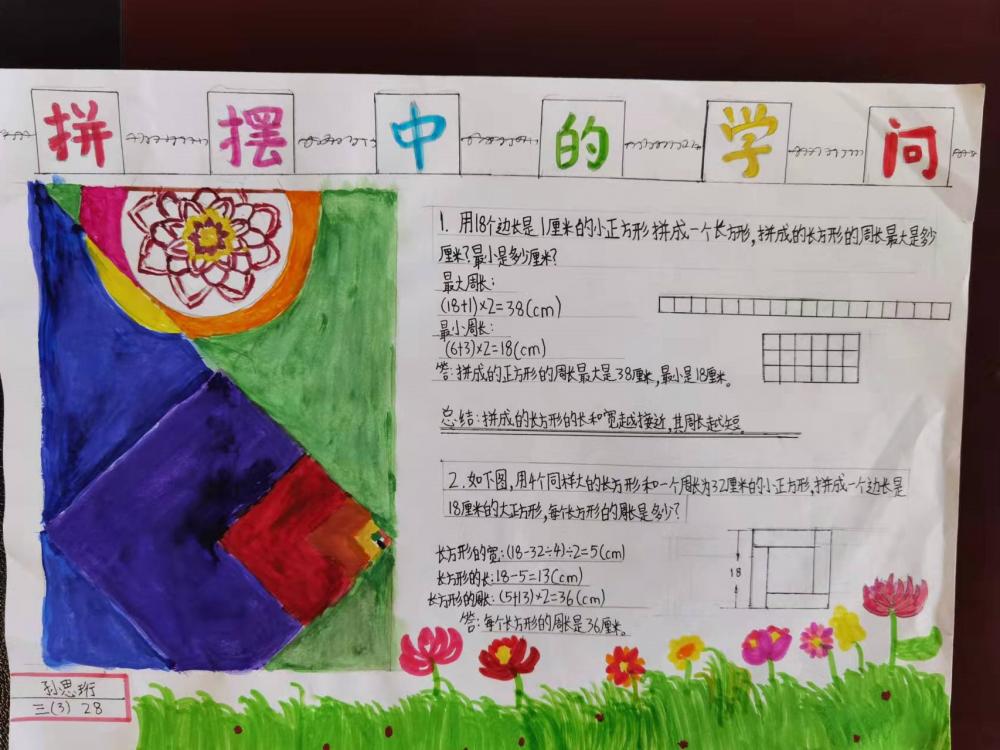 拼摆中的学问
1. 用18个边长是1厘米的小正方形拼成一个长方形,拼成的长方形的周长最大是多少
厘米?最小是多少厘米?
最大周长:
(18+1)×2=38(cm)
最小周长:
(6+3)×2=18(cm)
答:拼成的正方形的周长最大是38厘米,最小是18厘米。
总结:拼成的长方形的长和宽越接近,其周长越短.
2.如下图,用4个同样大的长方形和一个周长为32厘米的小正方形,拼成一个边长是
18厘米的大正方形,每个长方形的周长是多少?
长方形的宽:(18-32÷4)÷2=5(cm)
长方形的长:18-5=13(cm)
长方形的周长:(5+13)×2=36(cm)
答:每个长方形的周长是36厘米。
18
孙思珩
三(3) 28